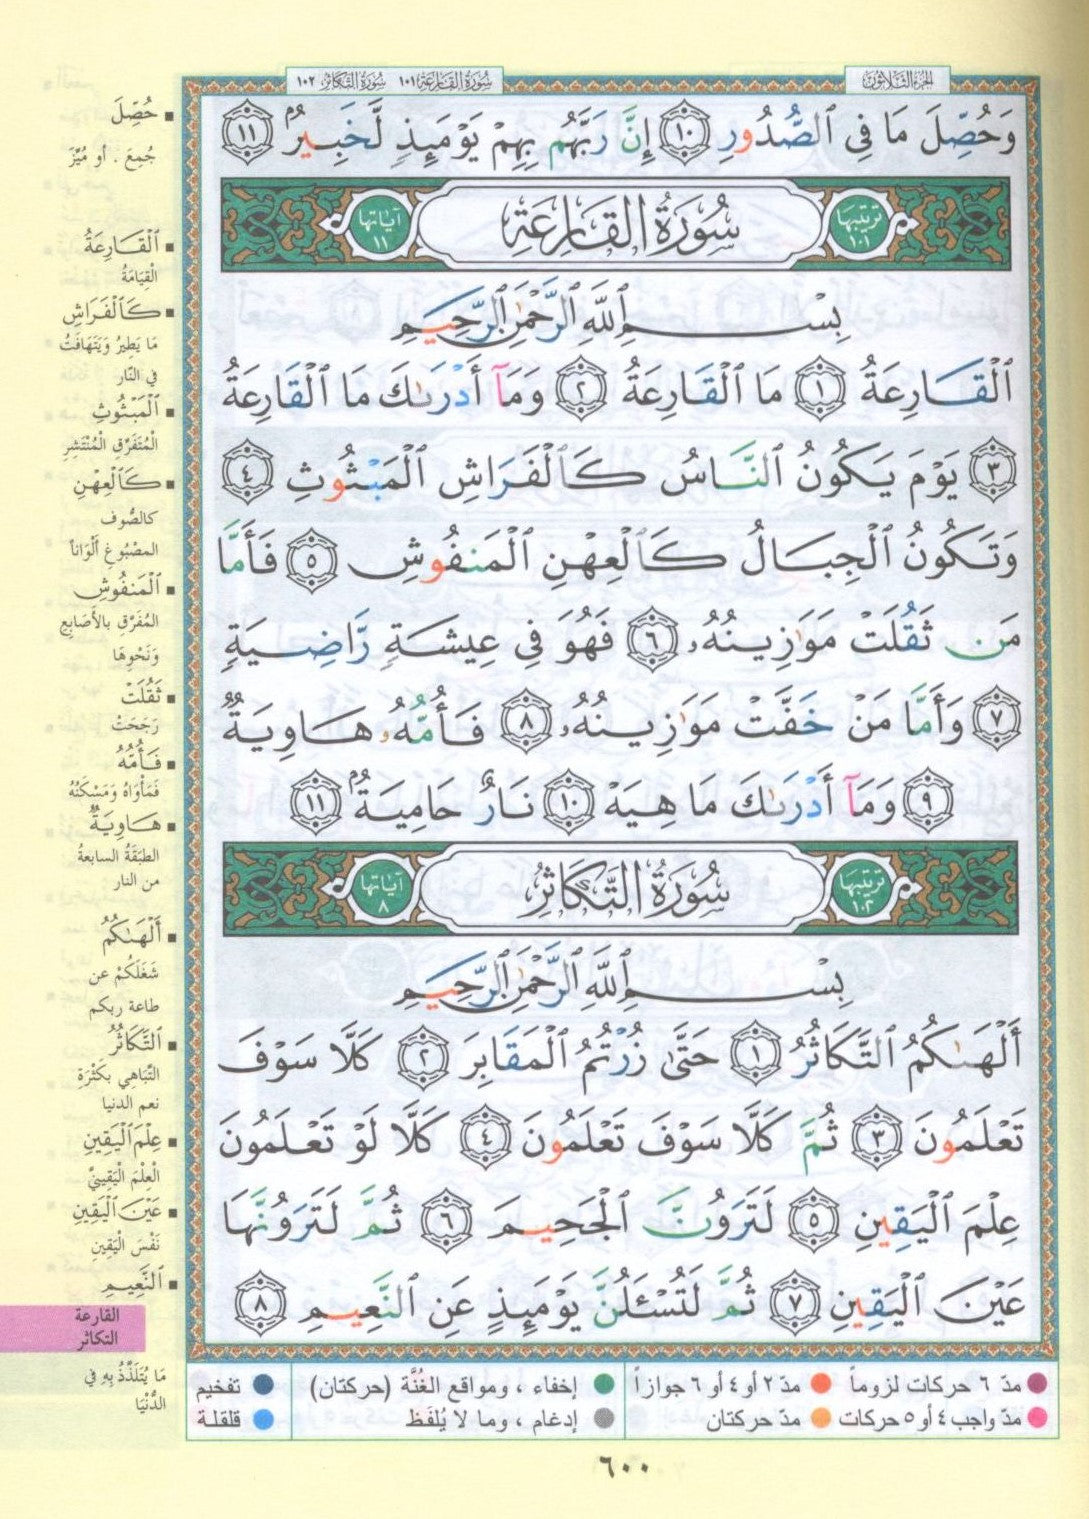 الجزء الثلاثون
سورة القارعة ١٠١ سورة التكاثر ١٠٢
وَحُصِّلَ مَا فِى ٱلصُّدُورِ ١٠ إِنَّ رَبَّهُم بِهِمْ يَوْمَئِذٍ لَّخَبِيرٌۢ ١١
ترتيبها ١٠١ سُورَةُ القَارِعَةِ آياتها ١١
بِسْمِ ٱللَّهِ ٱلرَّحْمَٰنِ ٱلرَّحِيمِ
ٱلْقَارِعَةُ ١ مَا ٱلْقَارِعَةُ ٢ وَمَآ أَدْرَىٰكَ مَا ٱلْقَارِعَةُ
٣ يَوْمَ يَكُونُ ٱلنَّاسُ كَٱلْفَرَاشِ ٱلْمَبْثُوثِ ٤
وَتَكُونُ ٱلْجِبَالُ كَٱلْعِهْنِ ٱلْمَنفُوشِ ٥ فَأَمَّا
مَن ثَقُلَتْ مَوَٰزِينُهُۥ ٦ فَهُوَ فِى عِيشَةٍ رَّاضِيَةٍ
٧ وَأَمَّا مَنْ خَفَّتْ مَوَٰزِينُهُۥ ٨ فَأُمُّهُۥ هَاوِيَةٌ
٩ وَمَآ أَدْرَىٰكَ مَا هِيَهْ ١٠ نَارٌ حَامِيَةٌۢ ١١
ترتيبها ١٠٢ سُورَةُ التَّكَاثُرِ آياتها ٨
بِسْمِ ٱللَّهِ ٱلرَّحْمَٰنِ ٱلرَّحِيمِ
أَلْهَىٰكُمُ ٱلتَّكَاثُرُ ١ حَتَّىٰ زُرْتُمُ ٱلْمَقَابِرَ ٢ كَلَّا سَوْفَ
تَعْلَمُونَ ٣ ثُمَّ كَلَّا سَوْفَ تَعْلَمُونَ ٤ كَلَّا لَوْ تَعْلَمُونَ
عِلْمَ ٱلْيَقِينِ ٥ لَتَرَوُنَّ ٱلْجَحِيمَ ٦ ثُمَّ لَتَرَوُنَّهَا
عَيْنَ ٱلْيَقِينِ ٧ ثُمَّ لَتُسْـَٔلُنَّ يَوْمَئِذٍ عَنِ ٱلنَّعِيمِ ٨
حُصِّلَ
جُمِعَ . أو مُيِّزَ
ٱلْقَارِعَةُ
الْقِيَامَةُ
كَٱلْفَرَاشِ
مَا يَطِيرُ وَيَتَهَافَتُ
في النَّار
ٱلْمَبْثُوثِ
الْمُتَفَرِّقِ الْمُنْتَشِرِ
كَٱلْعِهْنِ
كالصُّوف
المصْبُوغِ أَلْوَاناً
ٱلْمَنفُوشِ
المُفَرَّقِ بالأَصَابِعِ
وَنَحْوِهَا
ثَقُلَتْ
رَجَحَتْ
فَأُمُّهُ
فَمَأْوَاهُ وَمَسْكَنُهُ
هَاوِيَةٌ
الطبَقَةُ السابعةُ
من النار
أَلْهَىٰكُمُ
شَغَلَكُمْ عن
طاعة ربكم
ٱلتَّكَاثُرُ
التَّبَاهِي بكَثْرَةِ
نعم الدنيا
عِلْمَ ٱلْيَقِينِ
الْعِلْمَ الْيَقِينيَّ
عَيْنَ ٱلْيَقِينِ
نَفْسَ الْيَقِينِ
ٱلنَّعِيمِ
القارعة
التكاثر
مَا يُتَلَذَّذُ بِهِ في
الدُّنْيَا
مدّ ٦ حركات لزوماً مدّ ٢ أو ٤ أو ٦ جوازاً إخفاء ، ومواقع الغُنَّة (حركتان) تفخيم
مدّ واجب ٤ أو ٥ حركات مدّ حركتان إدغام ، وما لا يُلفَظ قلقلة
٦٠٠